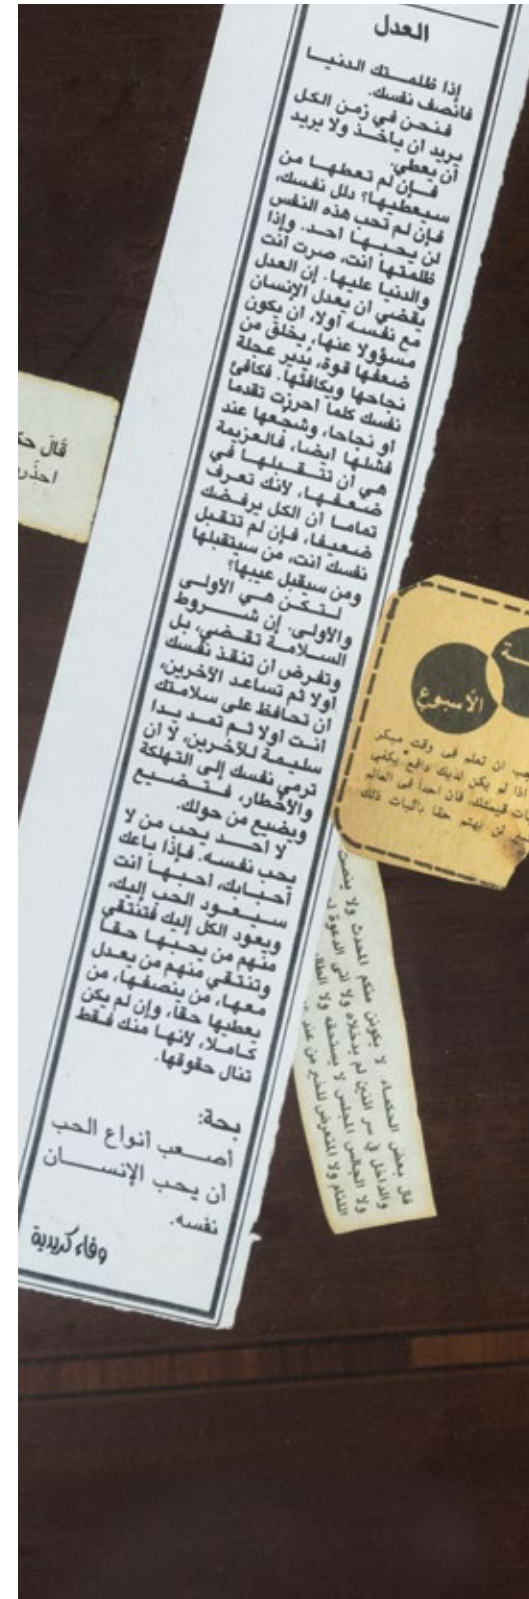 العدل
إذا ظلمـــتك الدنيــا
فانصف نفسك.
فـنـحـن في زمـن الكـل
يريد ان ياخـذ ولا يريد
أن يعطي.
فــإن لم تـعطهــا من
سيعطيها؟ دلل نفسك،
فإن لم تحب هذه النفس
لن يـحـبـهـا احـد. وإذا
ظلمتها انت، صرت أنت
والدنيا عليها. إن العدل
يقضي أن يعدل الإنسان
مع نفسـه اولا، ان يكون
مسؤولا عنها، يخلق من
ضعفها قوة، يدير عجلة
نجاحها ويكافئها. فكافئ
نفسك كلما أحرزت تقدما
او نجاحا، وشجعها عند
فشلها ايضا، فـالعزيمة
هي أن تتـقـبـلـهـا في
ضـعـفـهـا، لأنك تعـرف
تماما أن الكل يرفـضـك
ضـعيـفـا، فـإن لم تتـقـبل
نفسك أنت، من سيتقبلها
ومن سيقبل عيبها؟
لـتـكـن هـي الأولـى
والأولـى. إن شـــروط
السـلامـة تقـضي، بل
وتفـرض أن تنقـذ نفسك
أولا ثم تساعد الآخرين،
أن تحافظ على سلامتك
انـت اولا ثـم تمـد يـدا
سليمة للآخرين، لا أن
ترمي نفسك إلى التهلكة
والأخطار، فـتـضـيـع
ويضيع من حولك.
لا أحــد يحب من لا
يحب نفـسـه. فـإذا باعك
أحـبـابك، احـبـهـا انت
سـيـعـود الحب إليك،
ويعود الكل إليك فتنتقي
منهم من يـحـبـهـا حـقـا
وتنتـقي منهم من يعـدل
معـهـا، من ينصفـهـا، من
يعطيها حقا، وإن لم يكن
كـامـلا، لأنهـا منك فـقط
تنال حقوقها.
بحة:
أصــعب أنواع الحب
أن يحب الإنســــان
نفسه.
وفاء كريدية
قال
احذر
الأسبوع
ان تعلم في وقت مبكر
اذا لم يكن لديك دافع يكفي
فان احدا في العالم
لن يهتم حقا باثبات ذلك
قال بعض الحكماء: لا يكونن منكم المحدث ولا ينصت
والداخل في سر اثنين لم يدخلاه ولا اتى الدعوة
ولا الجالس المجلس لا يستحقه ولا
اللئام ولا المتعرض للخير من عند